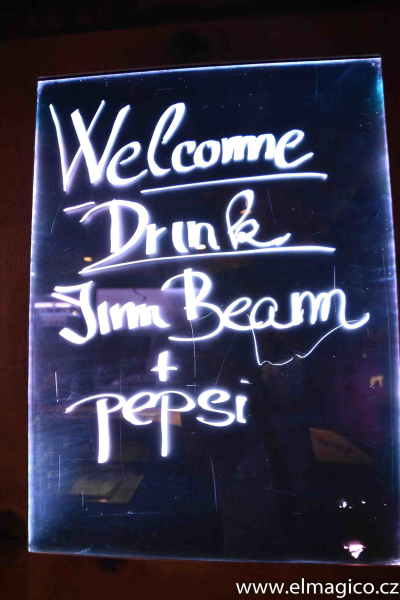 Welcome
Drink
Jim Beam
+
pepsi
www.elmagico.cz